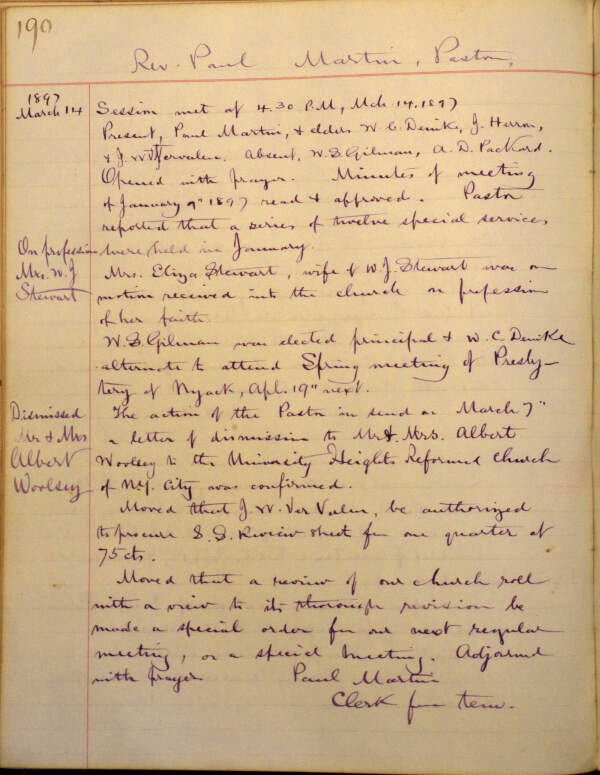 190
Rev. Paul Martin, Pastor,
1897
March 14
Session met at 4.30 P.M, Mch. 14, 1897
Present, Paul Martin, & elders W. C. Denike, J. Herron,
& J. W. VerValen. Absent, W. S. Gilman, A. D. Packard.
Opened with prayer. Minutes of meeting
of January 9" 1897 read & approved. Pastor
reported that a series of twelve special services
were held in January.
On profession
Mrs. W. J.
Stewart
Mrs. Eliza Stewart, wife of W. J. Stewart was on
motion received into the church on profession
of her faith.
W. S. Gilman was elected principal & W. C. Denike
alternate to attend Spring meeting of Presby-
tery of Nyack, Apl. 19" next.
Dismissed
Mr & Mrs
Albert
Woolsey
The action of the Pastor in send on March 7"
a letter of dismission to Mr. & Mrs. Albert
Woolsey to the University Heights Reformed Church
of N.Y. City was confirmed.
Moved that J. W. Ver Valen, be authorized
to procure S. S. Review sheet for one quarter at
75 cts.
Moved that a review of our church roll
with a view to its thorough revision be
made a special order for our next regular
meeting, or a special meeting. Adjourned
with prayer
Paul Martin
Clerk pro tem.